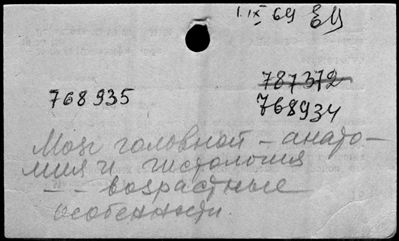 1.IX 69 ЕЦ
787372
768935
768934
Мозг головной - анато-
мия и гистология
- - возрастные
особенности.